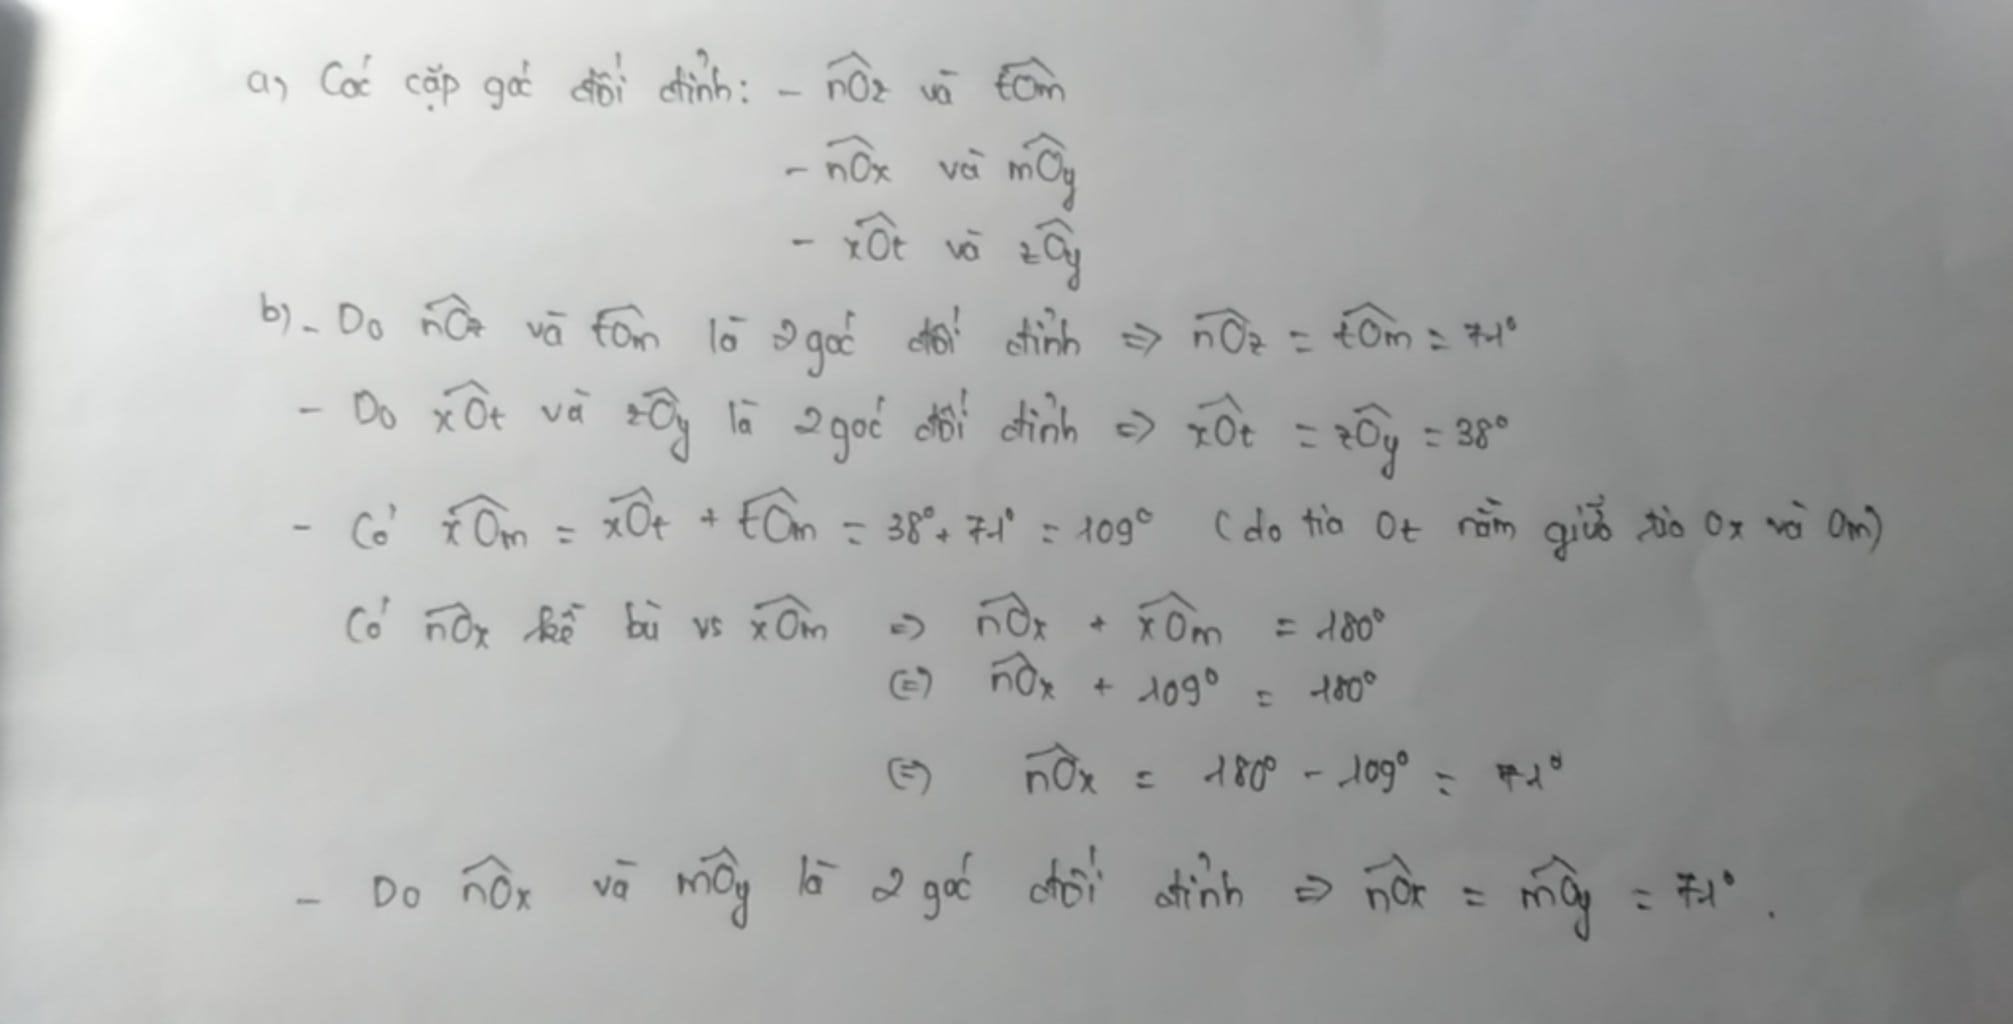 a) Các cặp góc đối đỉnh: - n̂Oz và t̂Om
- n̂Ox và m̂Oy
- x̂Ot và ẑOy
b) - Do n̂Oz và t̂Om là 2 góc đối đỉnh => n̂Oz = t̂Om = 71°
- Do x̂Ot và ẑOy là 2 góc đối đỉnh => x̂Ot = ẑOy = 38°
- Có x̂Om = x̂Ot + t̂Om = 38° + 71° = 109° (do tia Ot nằm giữa tia Ox và Om)
Có n̂Ox kề bù vs x̂Om => n̂Ox + x̂Om = 180°
(=) n̂Ox + 109° = 180°
(=) n̂Ox = 180° - 109° = 71°
- Do n̂Ox và m̂Oy là 2 góc đối đỉnh => n̂Ox = m̂Oy = 71°.